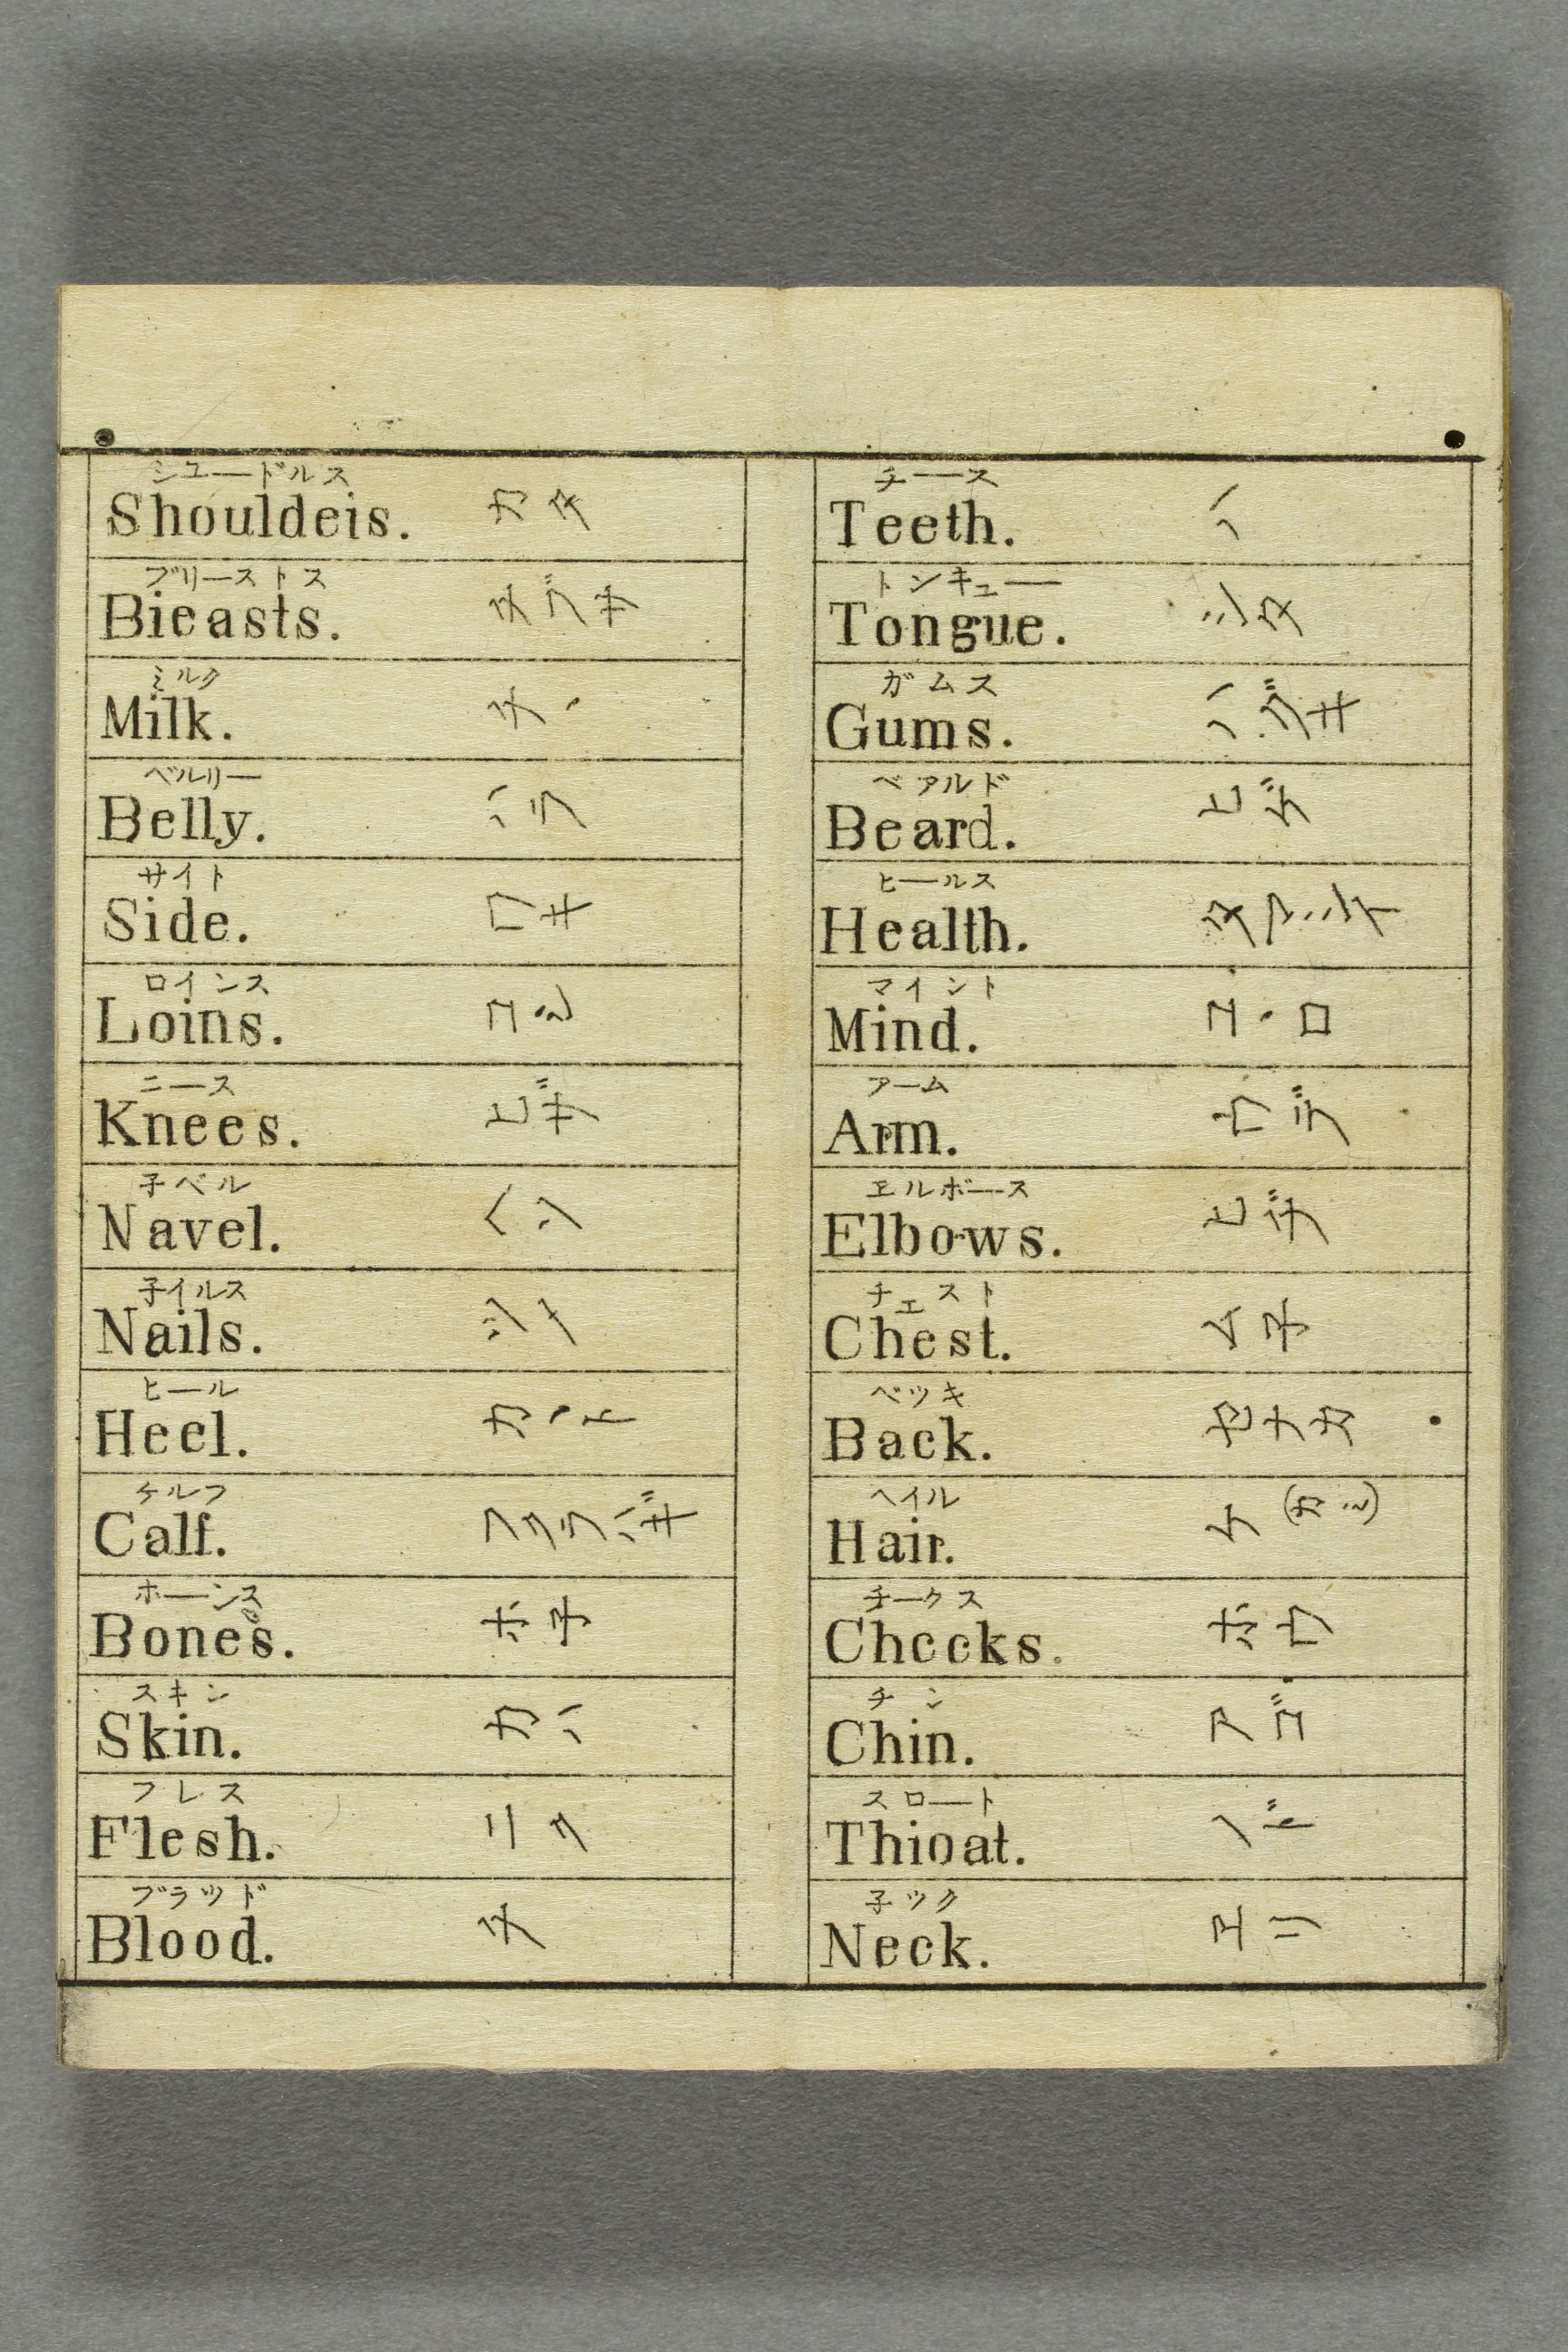 シユードルス
Shouldeis. カタ
ブリーストス
Bieasts. チブサ
ミルク
Milk. チヽ
ベルリー
Belly. ハラ
サイト
Side. ワキ
ロインス
Loins. コシ
ニース
Knees. ヒザ
子ベル
Navel. ヘソ
子イルス
Nails. ツメ
ヒール
Heel. カヽト
ケルフ
Calf. フクラハギ
ホーンス
Bones. ホ子
スキン
Skin. カハ
フレス
Flesh. ニク
ブラツド
Blood. チ
チース
Teeth. ハ
トンキユー
Tongue. シタ
ガムス
Gums. ハグキ
ベアルド
Beard. ヒゲ
ヒールス
Health.
マイント
Mind. コヽロ
アーム
Arm. ウデ
ヱルボース
Elbows. ヒヂ
チエスト
Chest. ム子
ベツキ
Back. セナカ
ヘイル
Hair. ケ (カミ)
チークス
Cheeks. ホウ
チン
Chin. アゴ
スロート
Thioat. ノド
子ツク
Neck. ヱリ